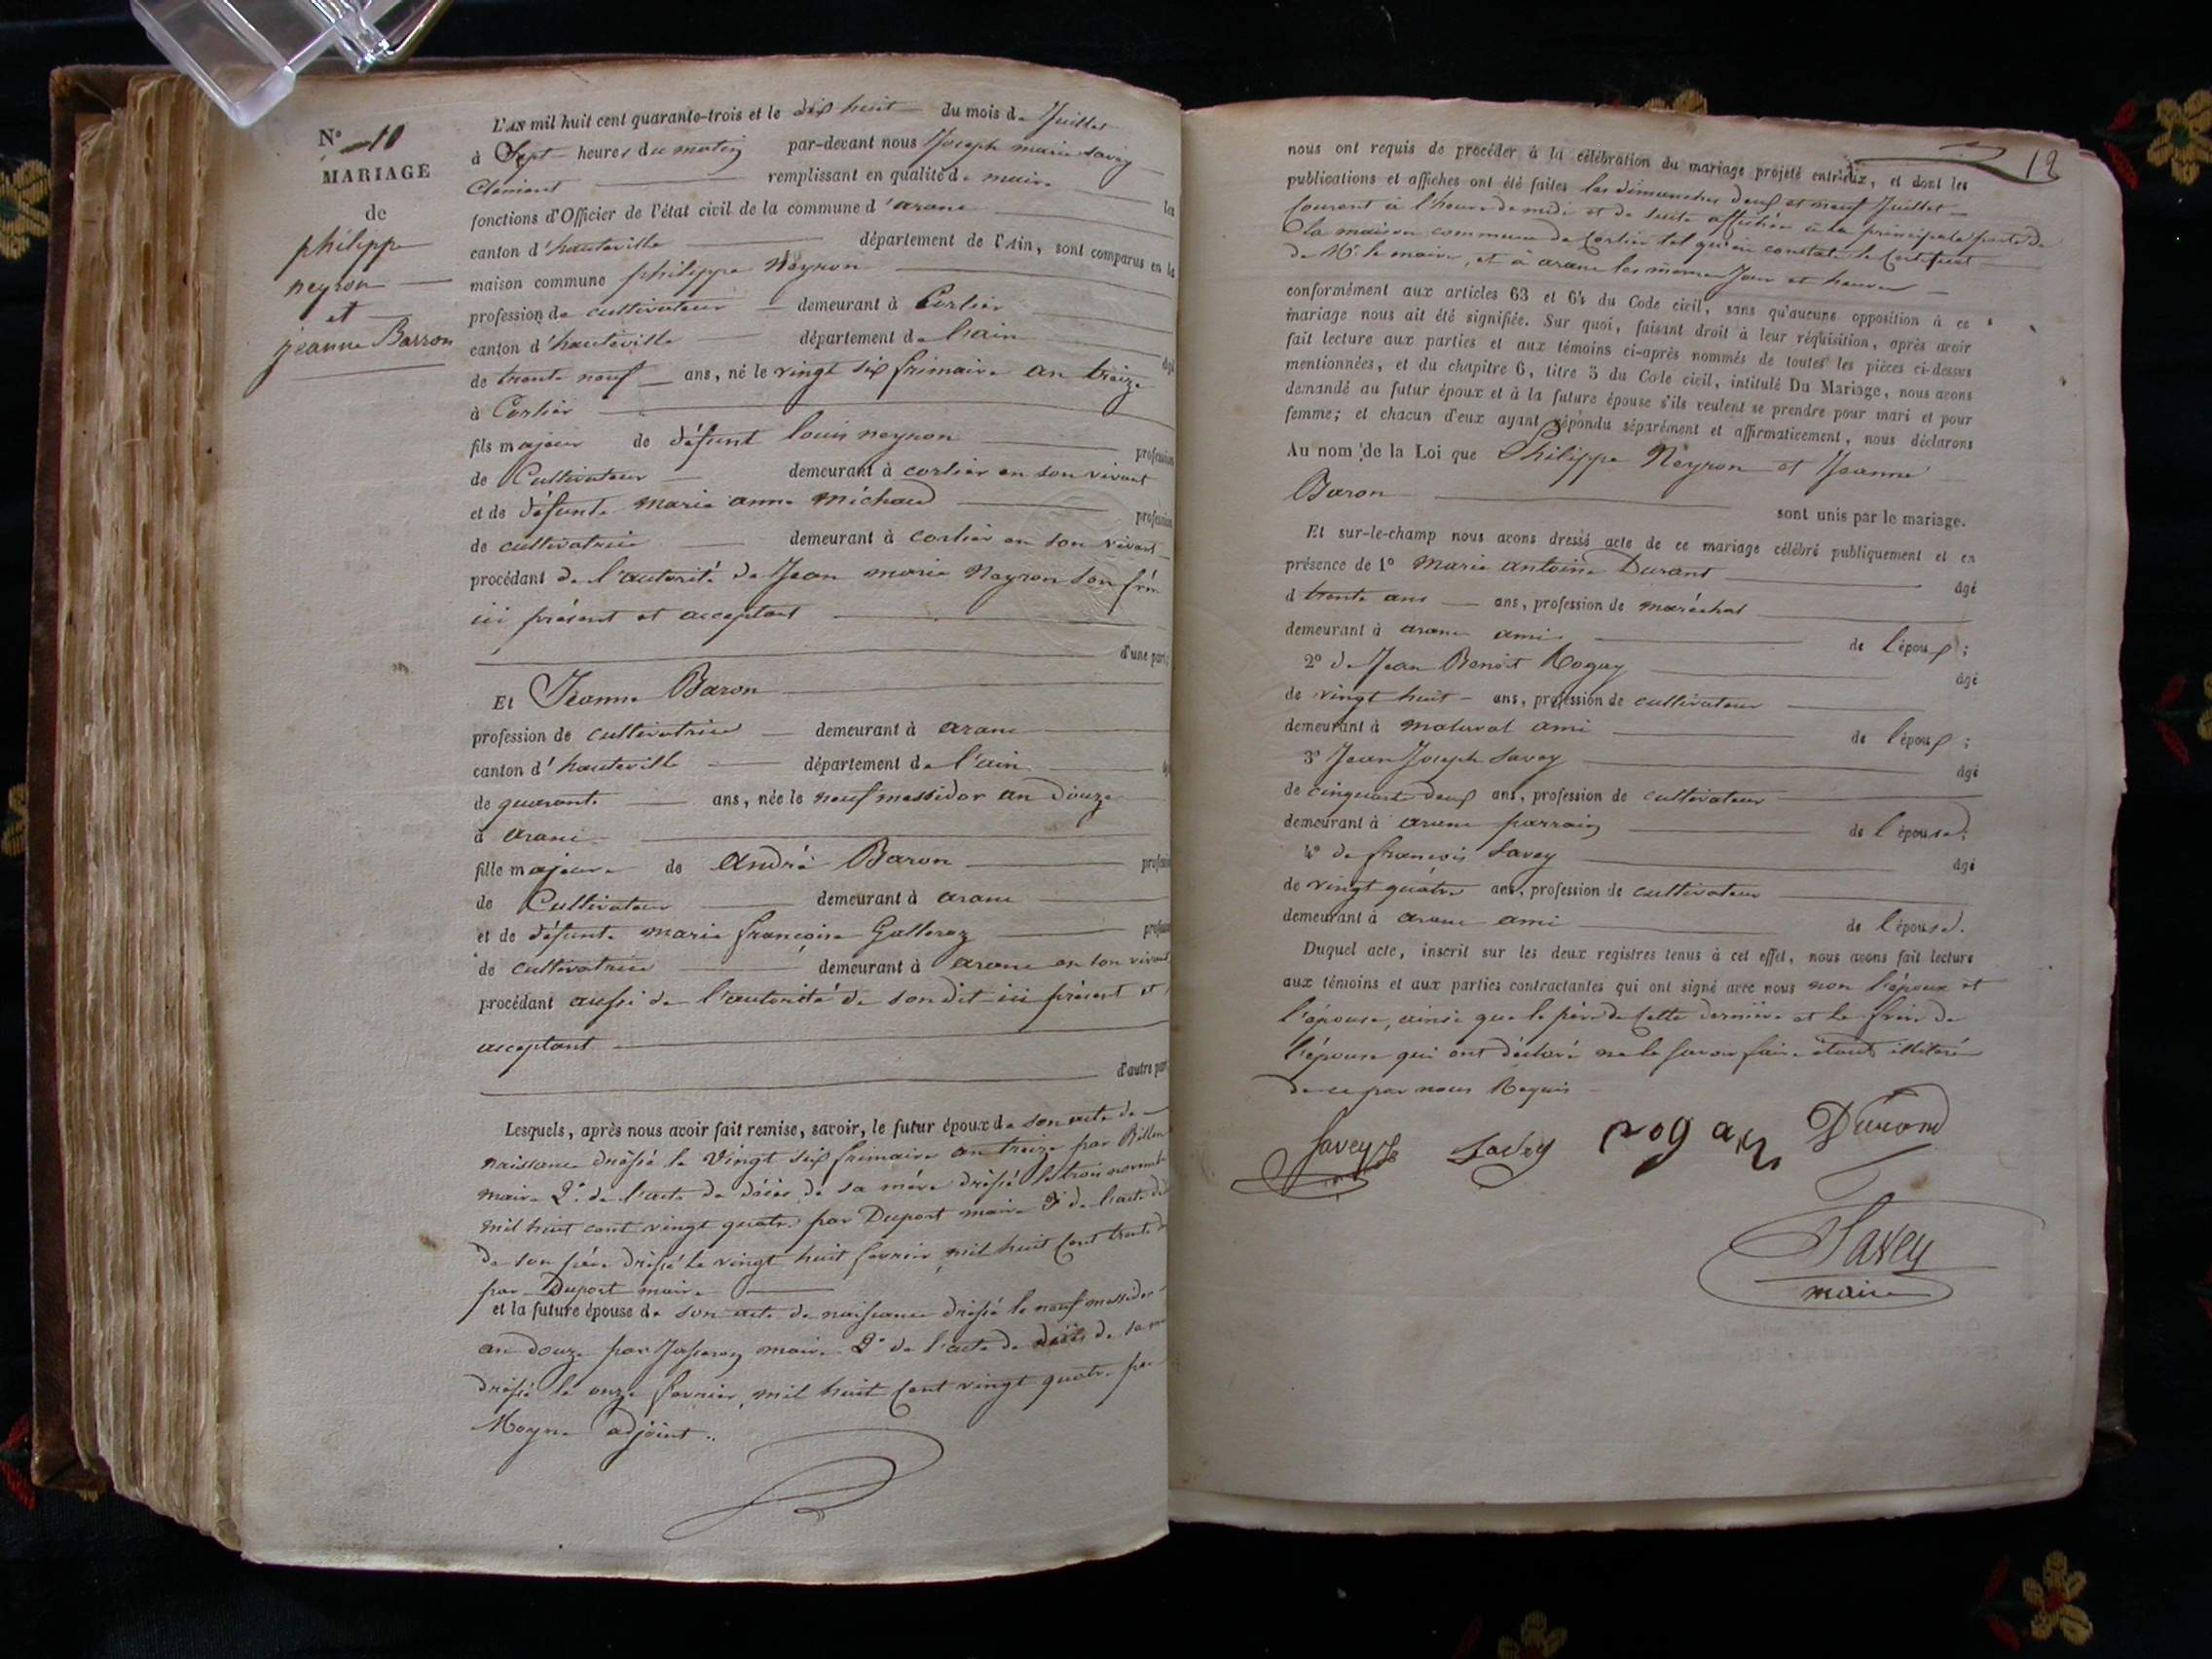 N° 10
MARIAGE
de
philippe
neyron
et
jeanne Barron
L'AN mil huit cent quarante-trois et le dix huit du mois de Juillet
à Sept heures du matin par-devant nous Joseph marie Savey
Clément remplissant en qualité de maire les
fonctions d'Officier de l'état civil de la commune d'aranc
canton d'hauteville département de l'Ain, sont comparus en la
maison commune philippe Neyron
profession de cultivateur demeurant à Corlier
canton d'hauteville département de lain âgé
de trente neuf ans, né le vingt six frimaire an treize
à Corlier
fils majeur de défunt louis neyron profession
de Cultivateur demeurant à corlier en son vivant
et de défunte marie anne michaud profession
de cultivatrice demeurant à corlier en son vivant
procédant de l'autorité de Jean marie Neyron son frère
ici présent et acceptant
d'une part;
Et Jeanne Baron
profession de cultivatrice demeurant à aranc
canton d'hauteville département de l'ain
de quarante ans, née le neuf messidor an douze
à aranc
fille majeure de andré Baron profession
de Cultivateur demeurant à aranc
et de défunte marie francoise Galleraz profession
de cultivatrice demeurant à aranc en son vivant
procédant aussi de l'autorité de son dit ici présent et
acceptant
d'autre part
Lesquels, après nous avoir fait remise, savoir, le futur époux de son acte de
naissance dressé le Vingt six frimaire an treize par
maire 2° de l'acte de décès de sa mère dressé le trois novembre
mil huit cent vingt quatre par Duport maire 3° de l'acte de
de son père dressé le vingt huit fevrier mil huit cent trente
par Duport maire
et la future épouse de son acte de naissance dressé le neuf messidor
an douze par maire 2° de l'acte de décès de sa
dressé le onze fevrier mil huit cent vingt quatre par
Moyne adjoint.
12
nous ont requis de procéder à la célébration du mariage projeté entr'eux, et dont les
publications et affiches ont été faites les dimanches deux et neuf Juillet
Courant à l'heure de midi et de suite affichée à la principale porte de
la maison commune de Corlier tel qu'en constate le Certificat
de Mr le maire, et à aranc les mêmes Jour et heures
conformément aux articles 63 et 64 du Code civil, sans qu'aucune opposition à ce
mariage nous ait été signifiée. Sur quoi, faisant droit à leur réquisition, après avoir
fait lecture aux parties et aux témoins ci-après nommés de toutes les pièces ci-dessus
mentionnées, et du chapitre 6, titre 5 du Code civil, intitulé Du Mariage, nous avons
demandé au futur époux et à la future épouse s'ils veulent se prendre pour mari et pour
femme; et chacun d'eux ayant répondu séparément et affirmativement, nous déclarons
Au nom de la Loi que Philippe Neyron et Jeanne
Baron
sont unis par le mariage.
Et sur-le-champ nous avons dressé acte de ce mariage célébré publiquement et en
présence de 1° Marie antoine Durant âgé
d trente ans ans, profession de maréchal
demeurant à aranc ami de l'époux;
2° de Jean Benoit Rogay âgé
de vingt huit ans, profession de cultivateur
demeurant à malaval ami de l'époux;
3° Jean Joseph Savey âgé
de cinquante deux ans, profession de cultivateur
demeurant à aranc parrain de l'épouse;
4° de francois Savey âgé
de vingt quatre ans, profession de cultivateur
demeurant à aranc ami de l'épouse.
Duquel acte, inscrit sur les deux registres tenus à cet effet, nous avons fait lecture
aux témoins et aux parties contractantes qui ont signé avec nous non l'époux et
l'épouse, ainsi que le père de cette dernière et le frère de
l'épouse qui ont déclaré ne le savoir faire étant illitérés
de ce par nous Requis
Savey Savey rogay Durand
Savey
maire